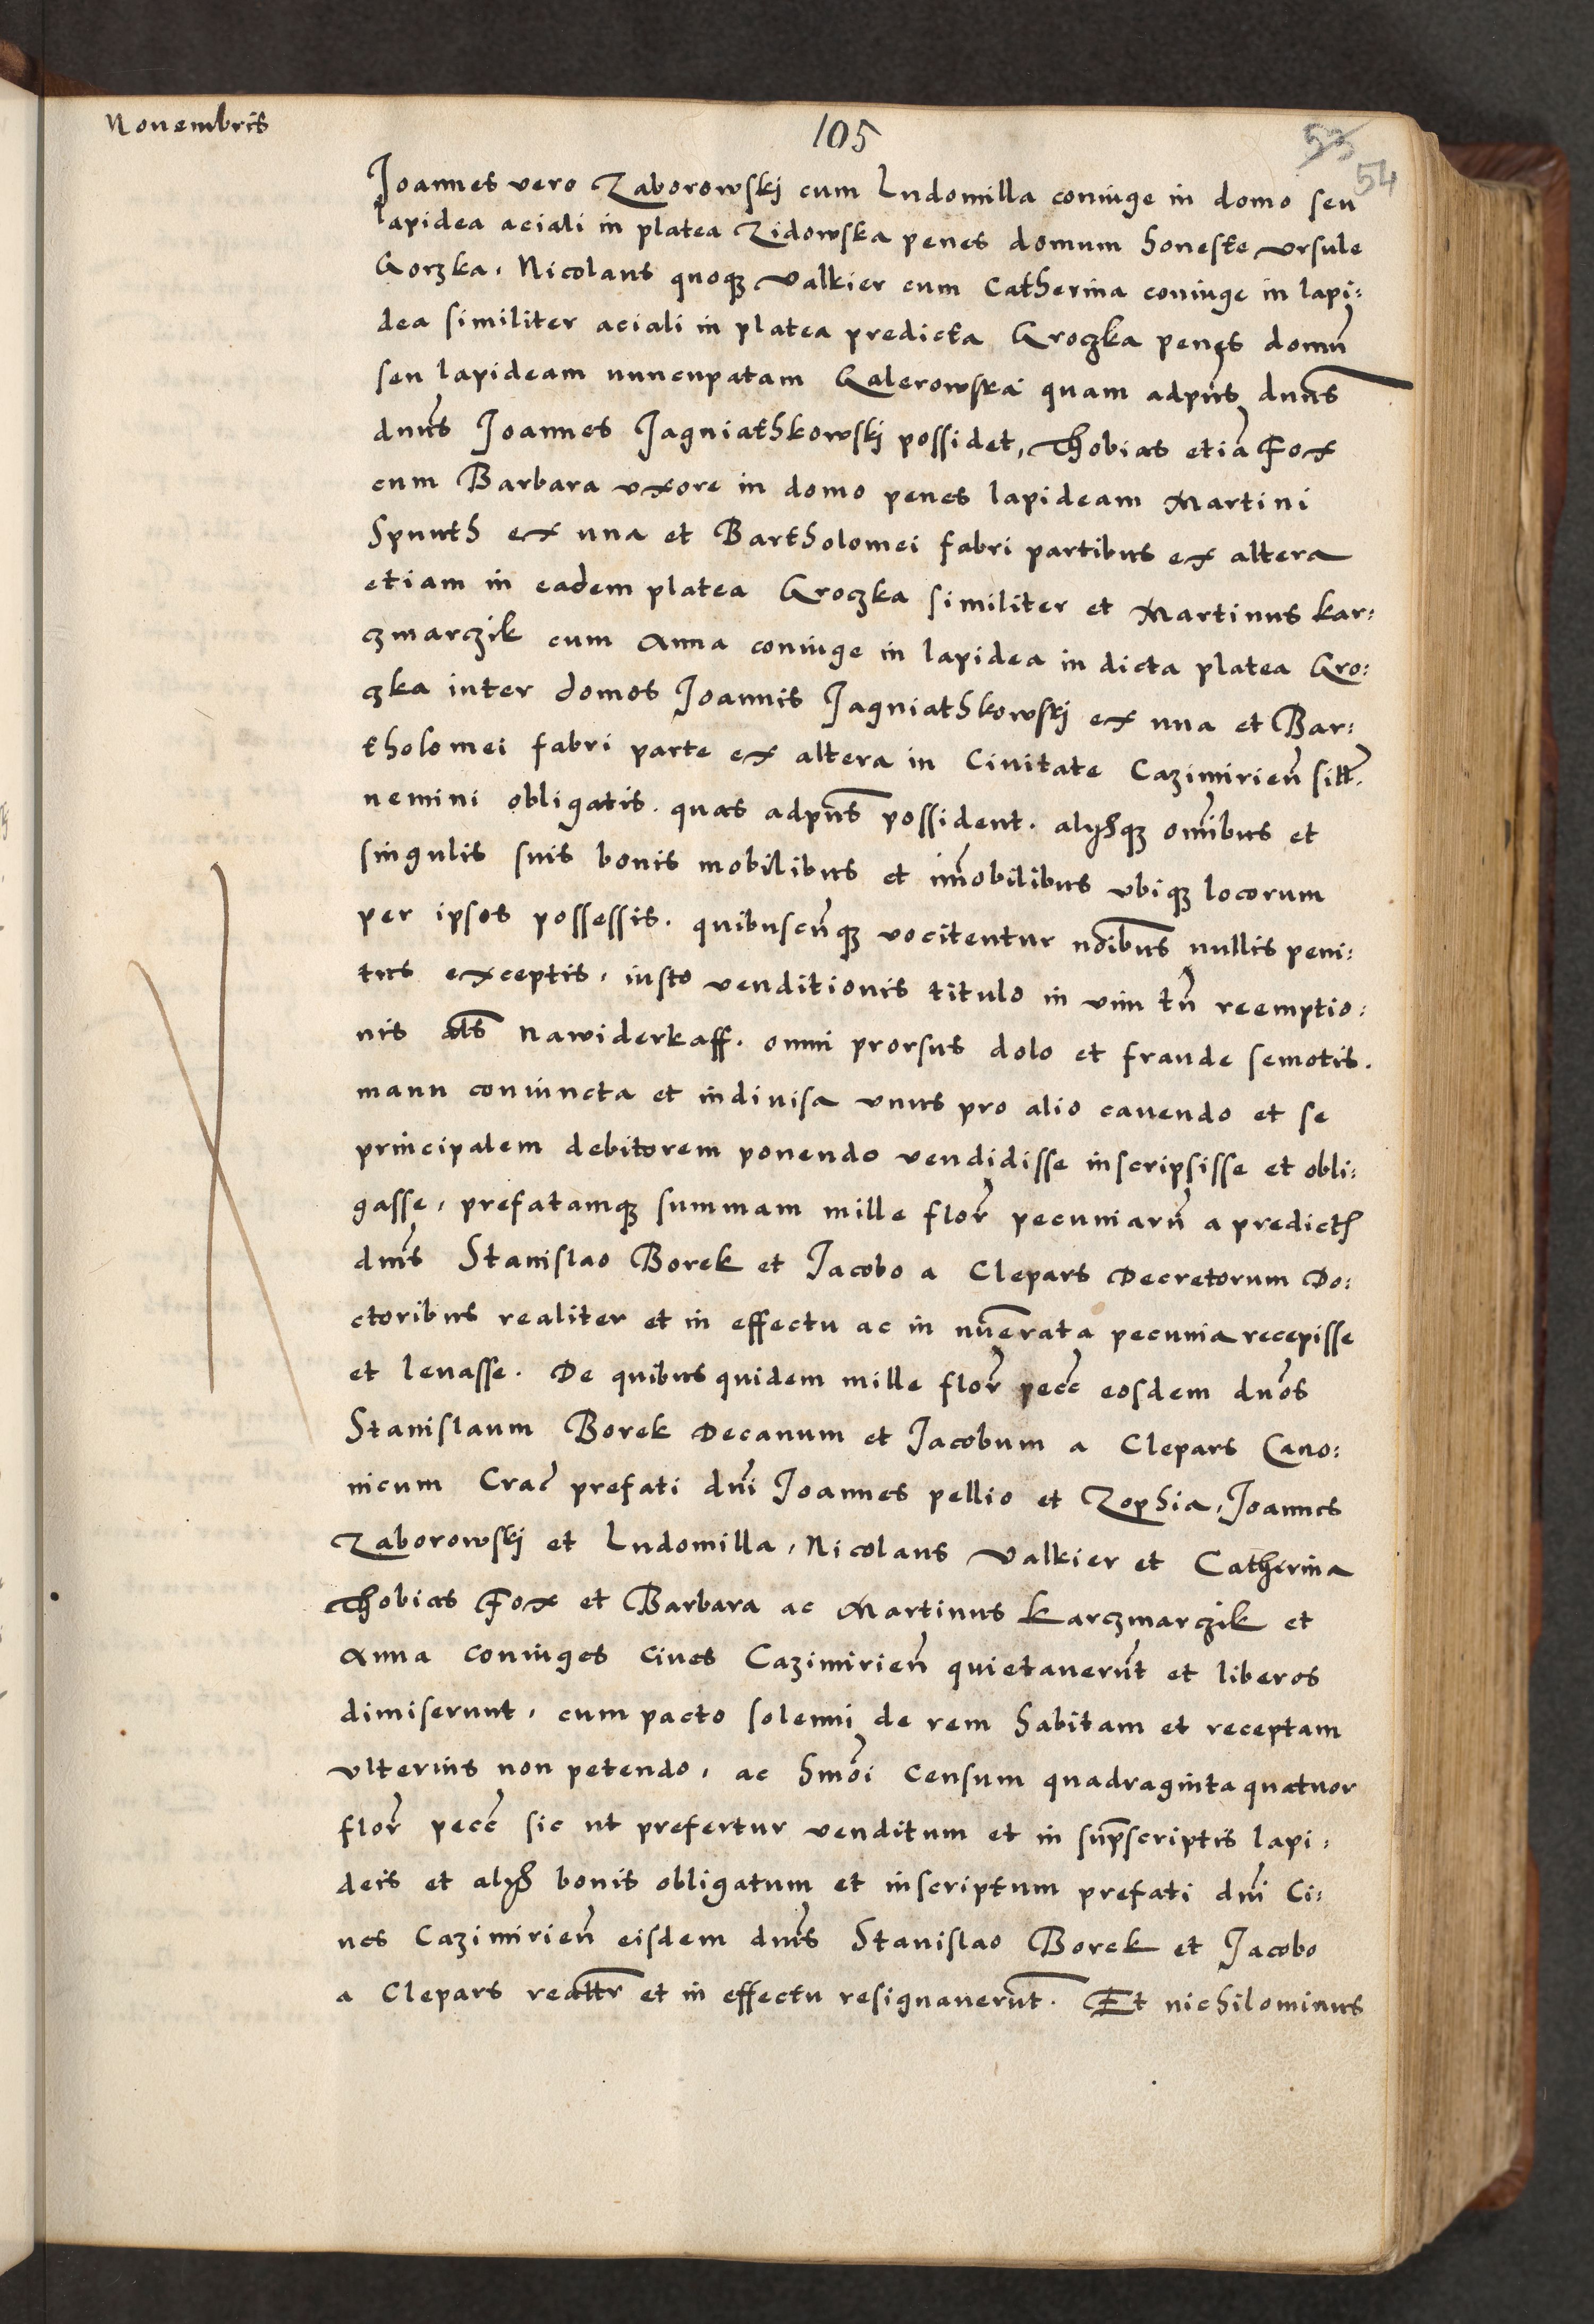 Novembris
105
53
54
Joannes vero Zaborowskj cum Ludomilla coniuge in domo seu
lapidea aciali in platea Zidowska penes domum honeste Vrsule
Gorzka, Nicolaus quoqz Valkier cum Catherina coniuge in lapi:
dea similiter aciali in platea predicta Groczka penes domũ
seu lapideam nuncupatam Galerowska quam adpñs dnus
dnus Joannes Jagniathkowskj possidet, Thobias etiã Fox
cum Barbara vxore in domo penes lapideam Martini
Spunth ex una et Bartholomei fabri partibus ex altera
etiam in eadem platea Groczka similiter et Martinus kar:
czmarczik cum Anna coniuge in lapidea in dicta platea Gro:
czka inter domos Joannis Jagniathkowskj ex una et Bar:
tholomei fabri parte ex altera in Civitate Cazimirieñ sitt.
nemini obligatis. quas adpñs possident. alysqz omibus et
singulis suis bonis mobilibus et imobilibus vbiqz locorum
per ipsos possessis. quibuscũqz vocitentur noibus nullis peni:
tus exceptis, iusto venditionis titulo in vim tñ reemptio:
nis als nawiderkaff. omni prorsus dolo et fraude semotis.
manu coniuncta et indivisa vnus pro alio cavendo et se
principalem debitorem ponendo vendidisse inscripsisse et obli:
gasse, prefatamqz summam mille flor pecuniarũ a predictis
dnis Stanislao Borek et Jacobo a Clepars Decretorum Do:
ctoribus realiter et in effectu ac in nuerata pecunia recepisse
et levasse. De quibus quidem mille flor pecc eosdem dnos
Stanislaum Borek Decanum et Jacobum a Clepars Cano:
nicum Crac prefati dni Joannes pellio et Zophia, Joannes
Zaborowskj et Ludomilla, Nicolaus Valkier et Catherina
Thobias Fox et Barbara ac Martinus Karczmarczik et
Anna coniuges cives Cazimirieñ quietaverũt et liberos
dimiserunt, cum pacto solenni de rem habitam et receptam
vlterius non petendo, ac hmoi Censum quadraginta quatuor
flor pecc sic ut prefertur venditum et in supscriptis lapi:
deis et alys bonis obligatum et inscriptum prefati dni Ci:
ves Cazimirieñ eisdem dnis Stanislao Borek et Jacobo
a Clepars realtr et in effectu resignaverũt. Et nichilominus